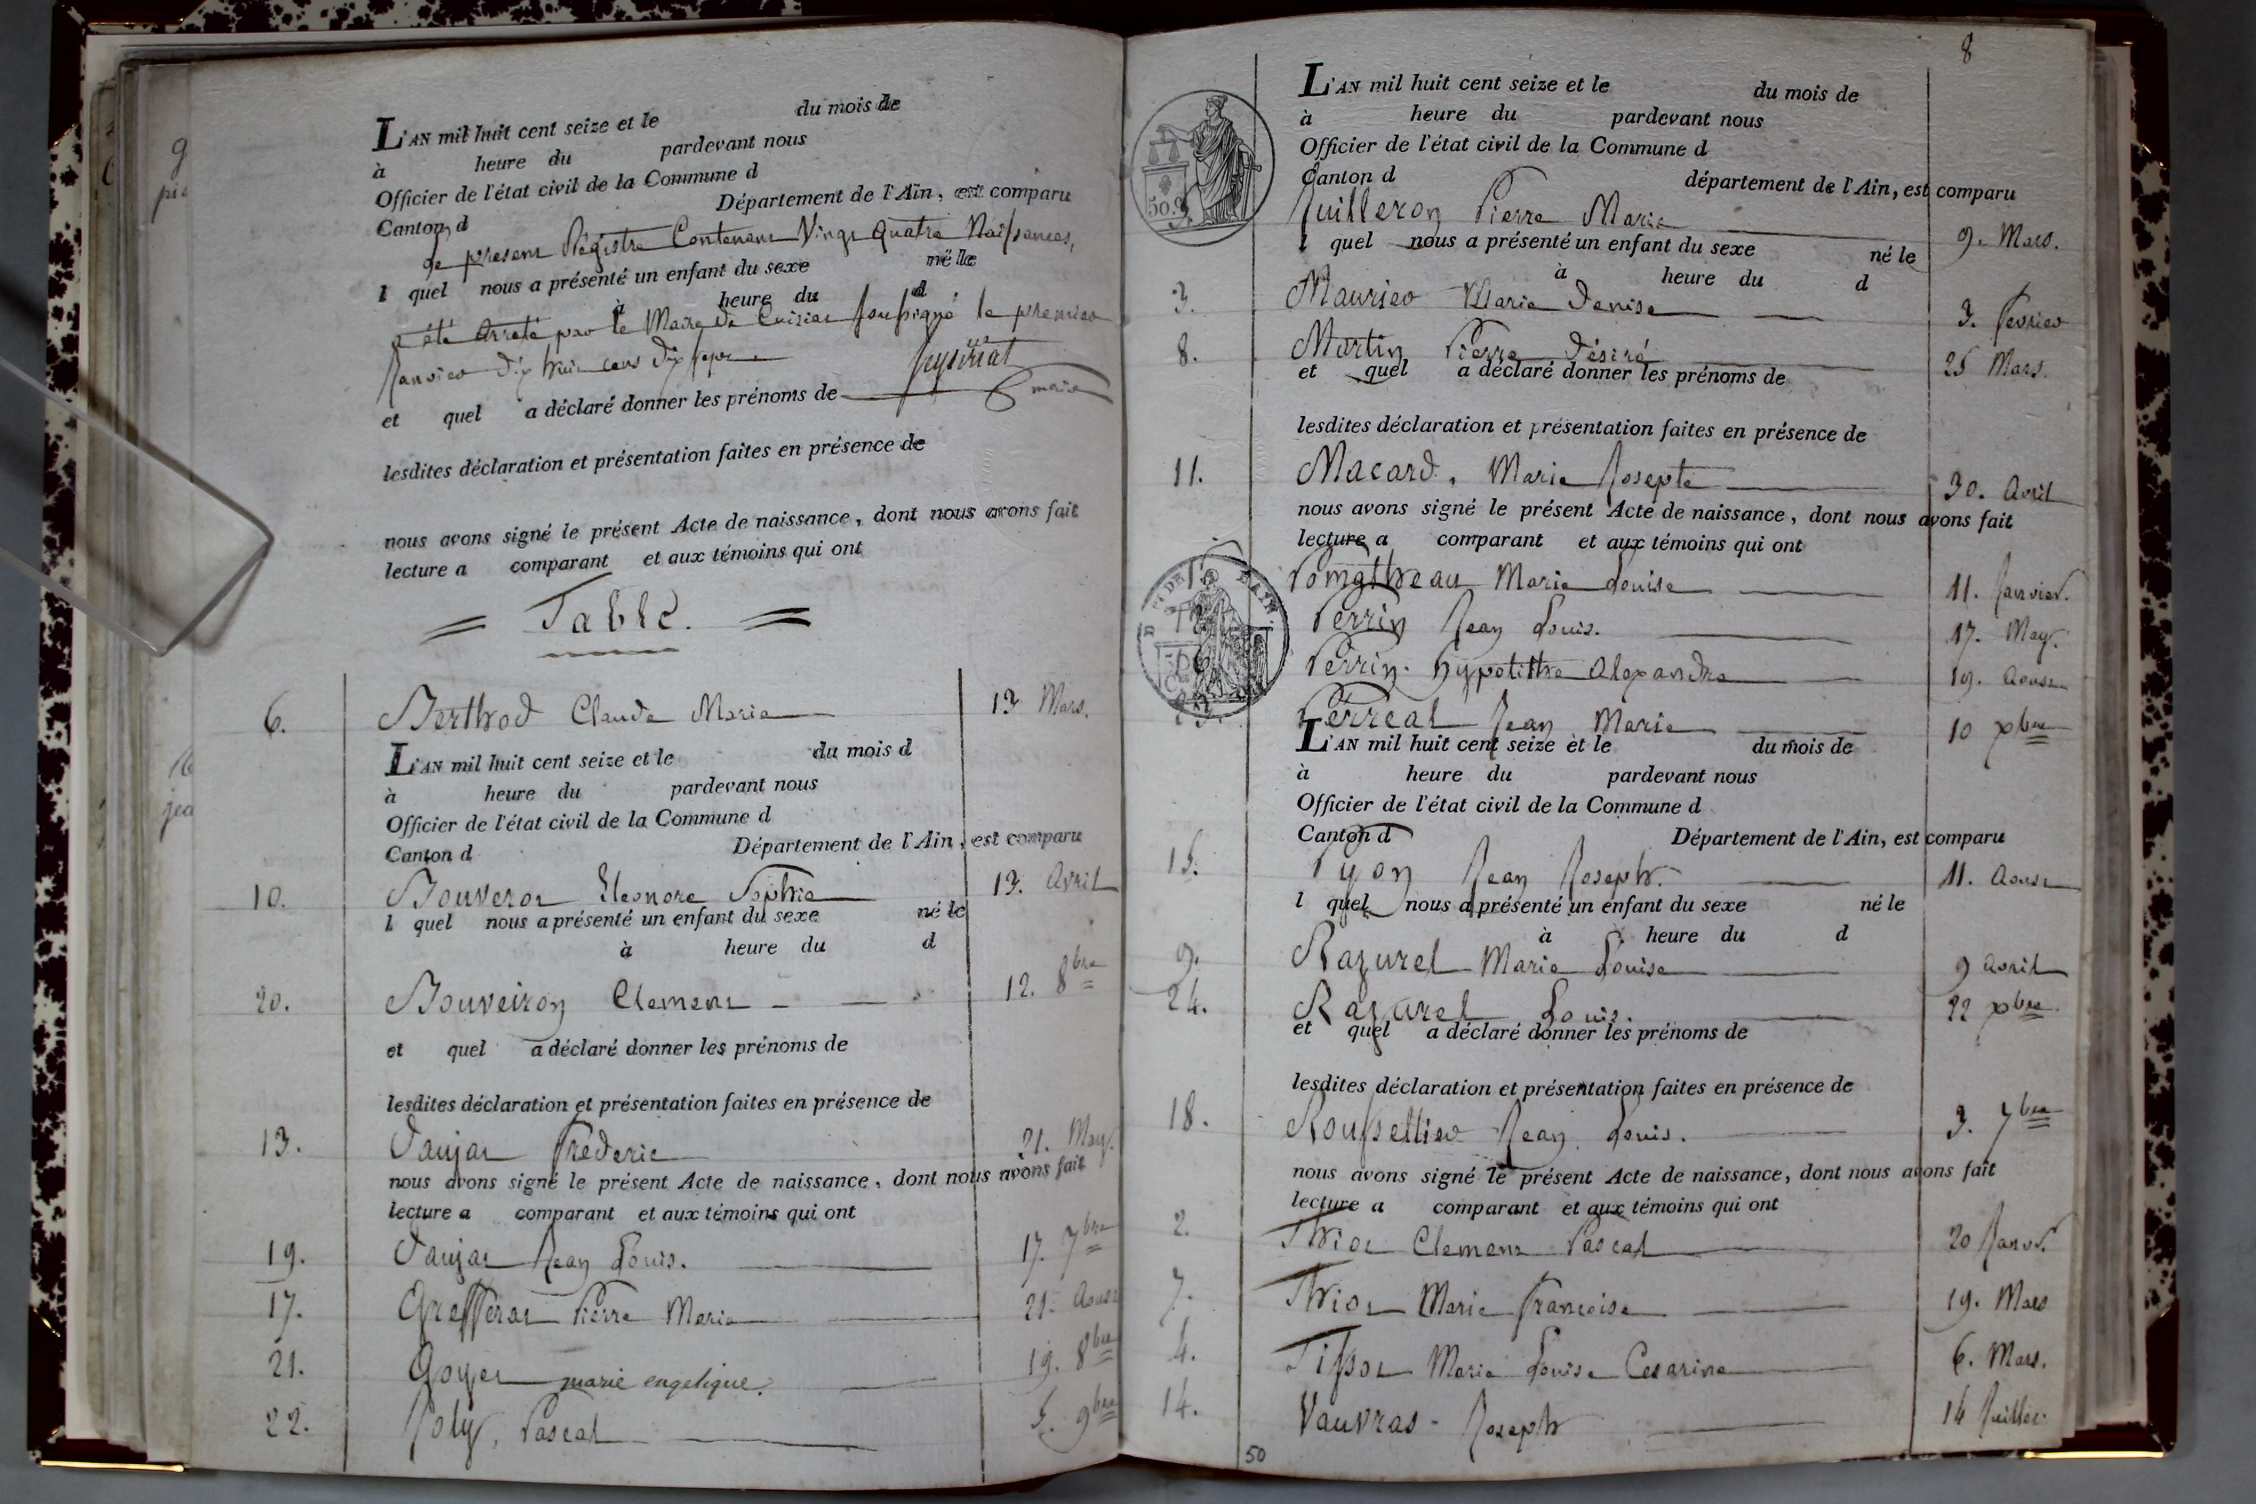 L'AN mil huit cent seize et le du mois de
à heure du pardevant nous
Officier de l'état civil de la Commune d
Canton d Département de l'Ain, est comparu
present Régistre Contenant Vingt quatre Naissances,
l quel nous a présenté un enfant du sexe né le
à heure du d
a été arreté par le Maire de Cuisiat soussigné le premier
Janvier dix huit cent dix sept
maire
et quel a déclaré donner les prénoms de
lesdites déclaration et présentation faites en présence de
nous avons signé le présent Acte de naissance, dont nous avons fait
lecture a comparant et aux témoins qui ont
= Table. =
6. Berthod Claude Marie 13 Mars.
L'AN mil huit cent seize et le du mois d
à heure du pardevant nous
Officier de l'état civil de la Commune d
Canton d Département de l'Ain, est comparu
10. Bouverot Eleonore Sophie 13. Avril
l quel nous a présenté un enfant du sexe né le
à heure du d
20. Bouveiron Clement 12. 8bre
et quel a déclaré donner les prénoms de
lesdites déclaration et présentation faites en présence de
13. Daujat Frederic 21. May.
nous avons signé le présent Acte de naissance, dont nous avons fait
lecture a comparant et aux témoins qui ont
19. Daujat Jean Louis. 17. 7bre
17. Grefferat Pierre Marie 21. Aoust
21. Goyet marie engelique. 19. 8bre
22. Joly, Pascal 5. 9bre
8
L'AN mil huit cent seize et le du mois de
à heure du pardevant nous
Officier de l'état civil de la Commune d
Canton d département de l'Ain, est comparu
50 c.
5. Juilleron Pierre Marie 9. Mars.
l quel nous a présenté un enfant du sexe né le
à heure du d
3. Maurier Marie Denise 3. fevrier
8. Martin Pierre Désiré 25 Mars.
et quel a déclaré donner les prénoms de
lesdites déclaration et présentation faites en présence de
11. Macard, Marie Josepte 30. Avril
nous avons signé le présent Acte de naissance, dont nous avons fait
lecture a comparant et aux témoins qui ont
Pomathieau Marie Louise 11. Janvier.
Perrin Jean Louis. 17. May.
Perrin. hypolitthe Alexandre 19. Aoust
Perreat Jean Marie 10 xbre
L'AN mil huit cent seize et le du mois de
à heure du pardevant nous
Officier de l'état civil de la Commune d
Canton d Département de l'Ain, est comparu
15. Pyon Jean Joseph. 11. Aoust
l quel nous a présenté un enfant du sexe né le
à heure du d
9. Razurel Marie Louise 9 avril
24. Razurel Louis. 22 xbre
et quel a déclaré donner les prénoms de
lesdites déclaration et présentation faites en présence de
18. Roussellier Jean Louis. 3. 7bre
nous avons signé le présent Acte de naissance, dont nous avons fait
lecture a comparant et aux témoins qui ont
2. Thiot Clement Pascal 20 Janvr.
7. Thiot Marie Françoise 19. Mars
4. Tissot Marie Louise Cesarine 6. Mars.
14. Vauvras - Joseph 14 Juillet.
50